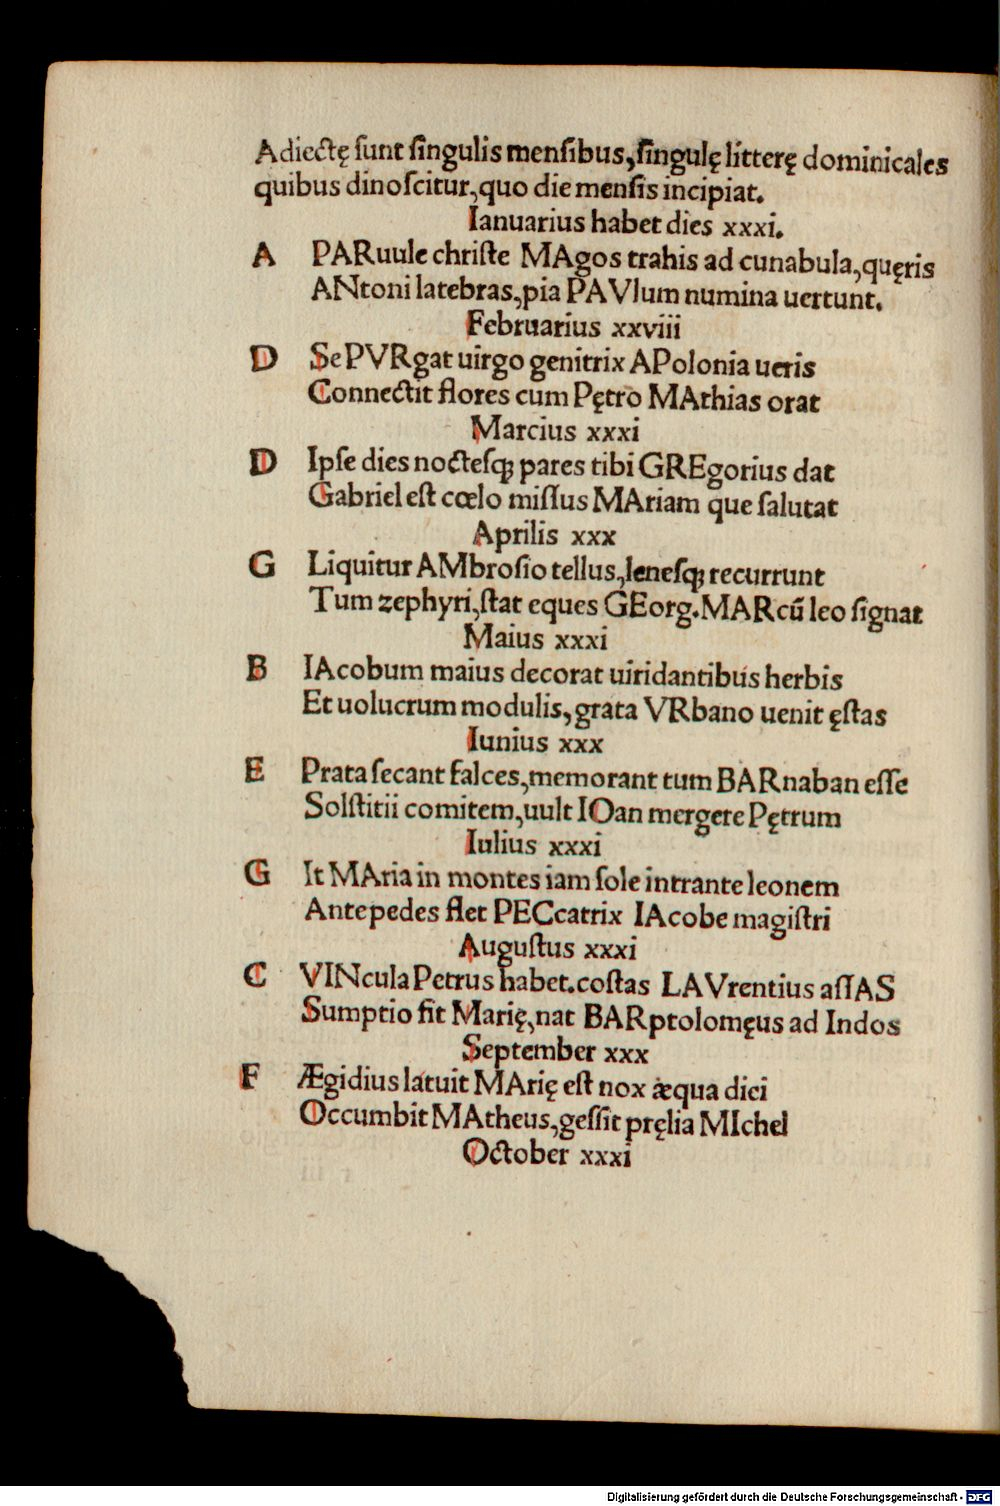 Adiectę ſunt ſingulis menſibus, ſingulę litterę dominicales
quibus dinoſcitur, quo die menſis incipiat.
Ianuarius habet dies xxxi.
A PARuule chriſte MAgos trahis ad cunabula, quęris
ANtoni latebras, pia PAVlum numina uertunt.
Februarius xxviii
D Se PVRgat uirgo genitrix APolonia ueris
Connectit flores cum Pętro MAthias orat
Marcius xxxi
D Ipſe dies noctesꝗ pares tibi GREgorius dat
Gabriel eſt cœlo miſſus MAriam que ſalutat
Aprilis xxx
G Liquitur AMbroſio tellus, lenesꝗ recurrunt
Tum zephyri, ſtat eques GEorg. MARcū leo ſignat
Maius xxxi
B IAcobum maius decorat uiridantibus herbis
Et uolucrum modulis, grata VRbano uenit ęſtas
Iunius xxx
E Prata ſecant falces, memorant tum BARnaban eſſe
Solſtitii comitem, uult IOan mergere Pętrum
Iulius xxxi
G It MAria in montes iam ſole intrante leonem
Ante pedes flet PECcatrix IAcobe magiſtri
Auguſtus xxxi
C VINcula Petrus habet. coſtas LAVrentius aſſAS
Sumptio fit Marię, nat BARptolomęus ad Indos
September xxx
F Ægidius latuit MArię eſt nox æqua diei
Occumbit MAtheus, geſſit pręlia MIchel
October xxxi
Digitalisierung gefördert durch die Deutsche Forschungsgemeinschaft - DFG